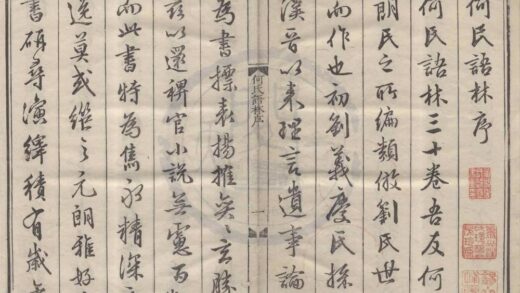 何氏語林序
何氏語林三十卷吾友何
朗氏之所編類倣劉氏世
而作也初劉義慶氏採
漢晉以來理言遺事論
何氏語林序 一
為書標表揚搉奕〻玄勝
茲以還稗官小說無慮百
而此書特為雋永精深
逸莫或繼之元朗雅好
書研尋演繹積有歲